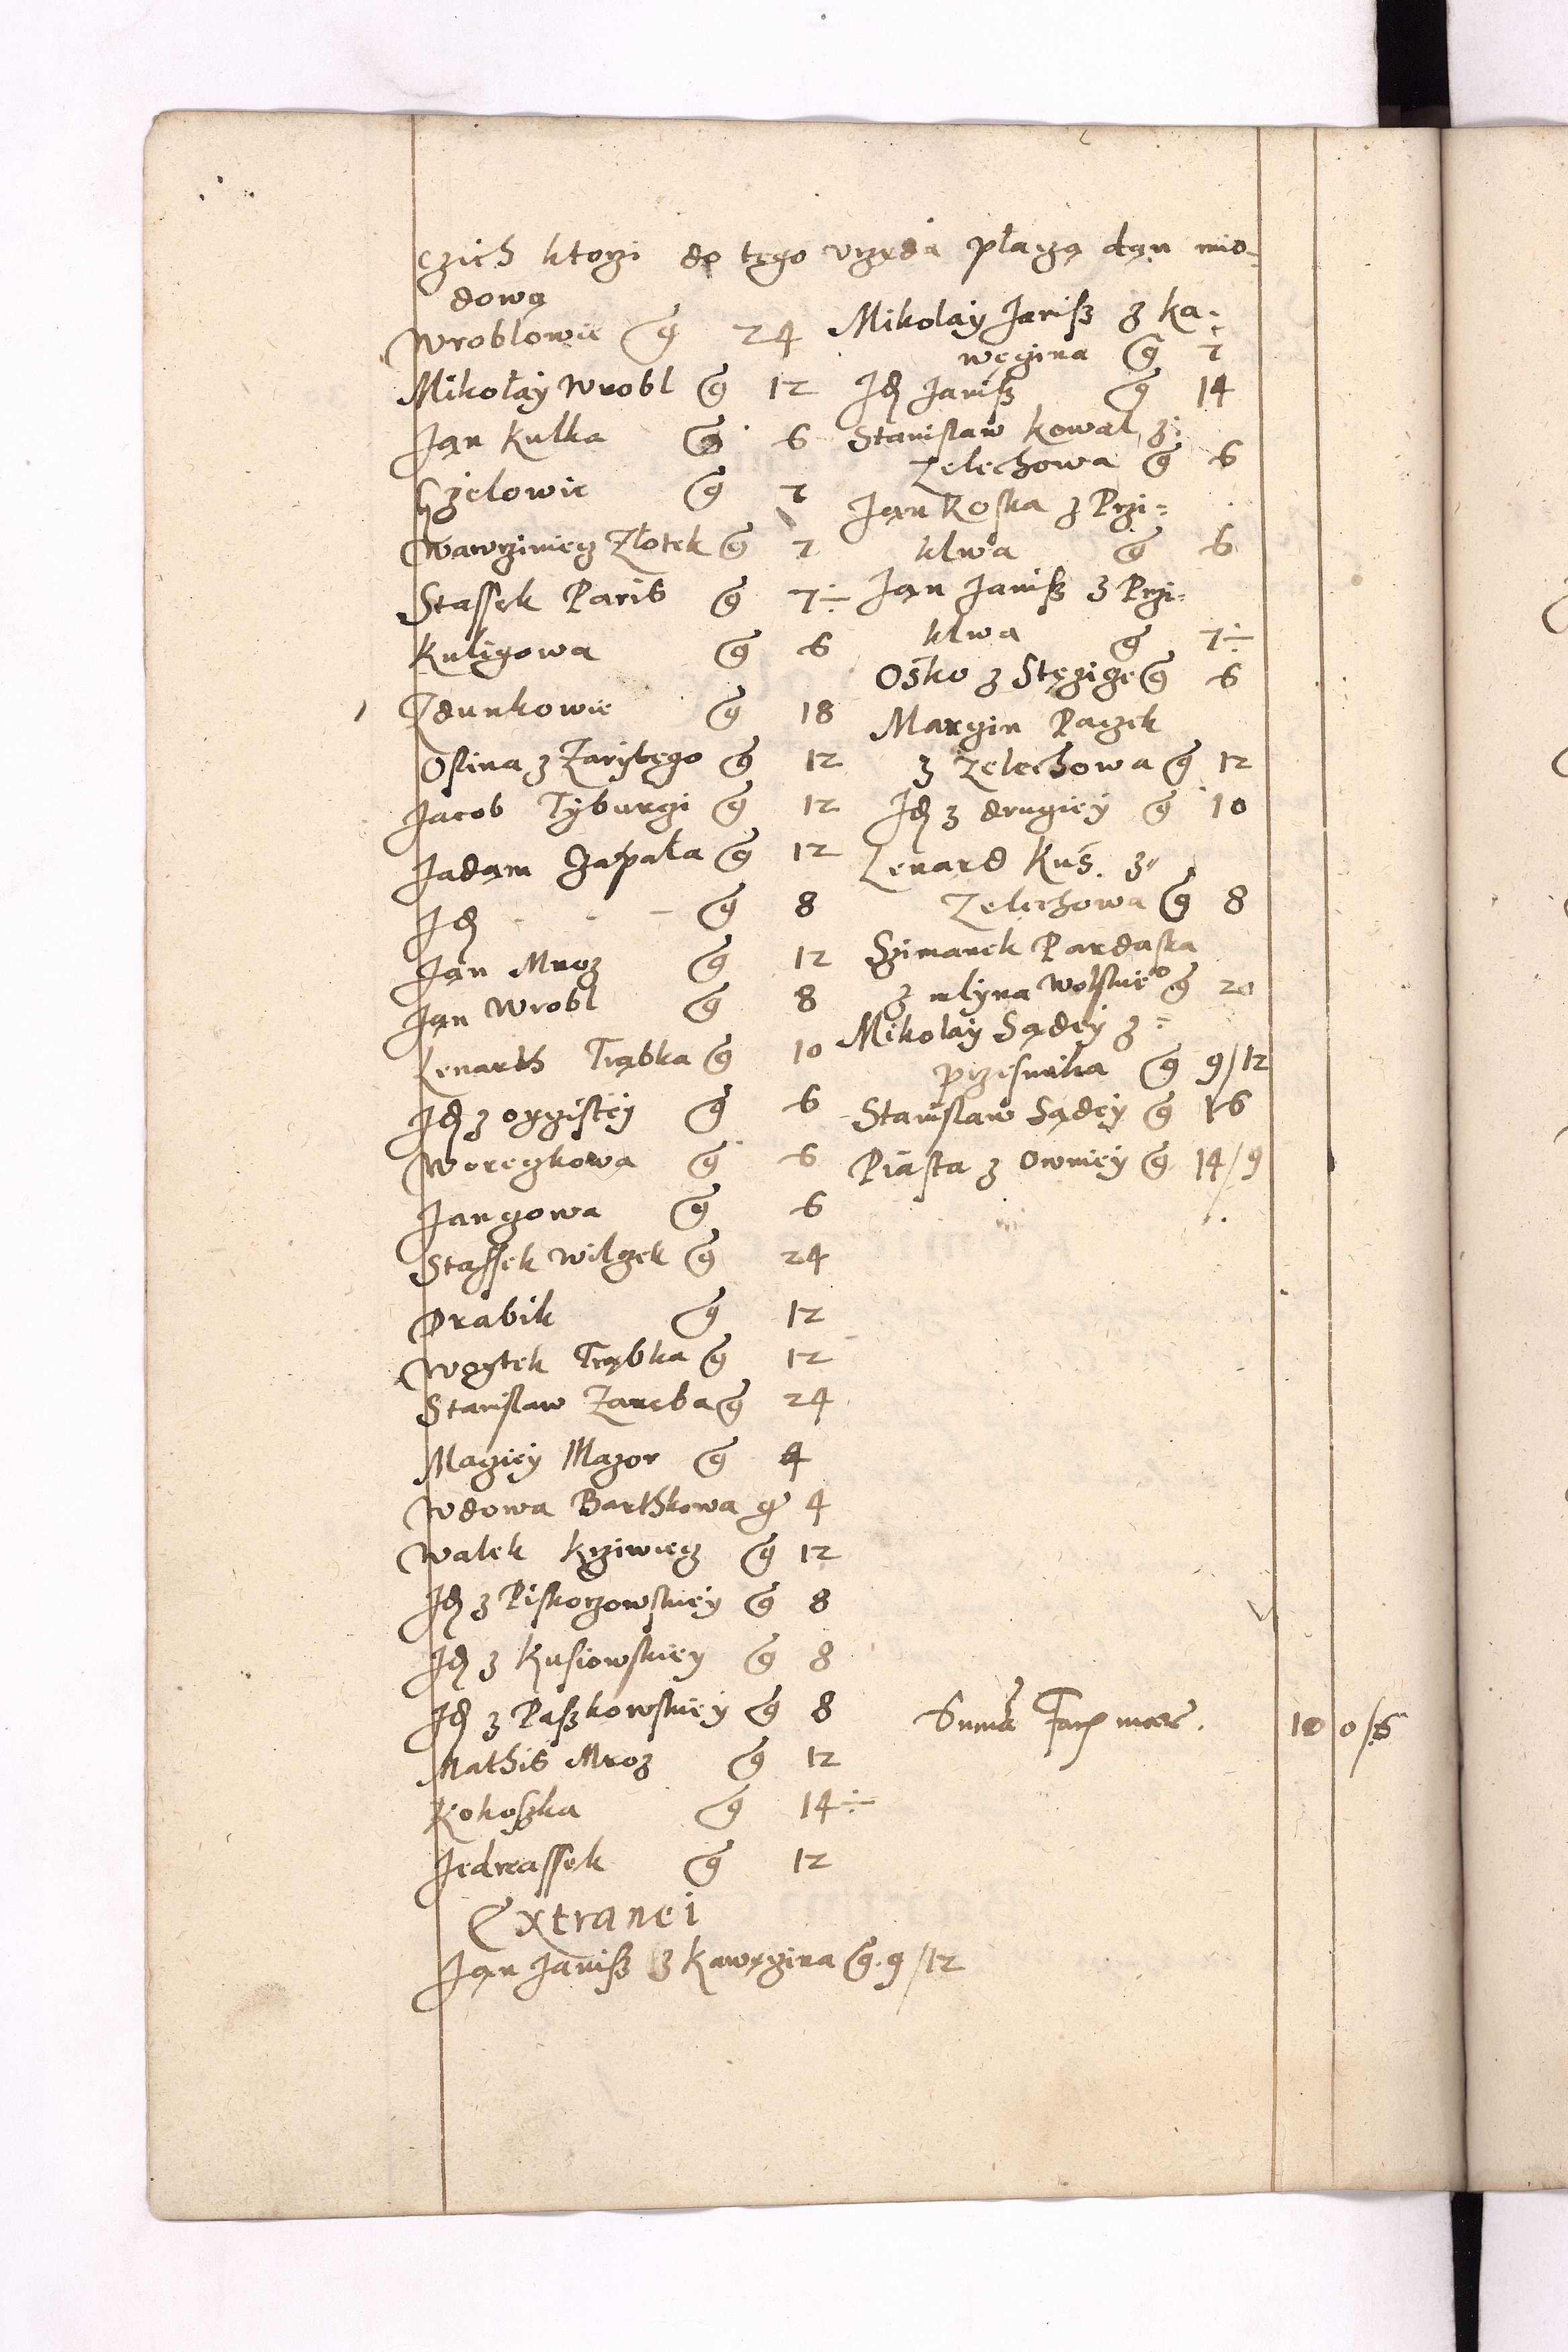 czich ktorzi do tego vrzęda płaczą dąn mio-
dową
Wroblowie g 24
Mikołay Wrobl g 12
Jan Kulka g 6
Czelowie g 7
Wawrziniecz Złotek g 7
Stassek Paris g 7÷
Kuligowa g 6
Zdunkowie g 18
Osina z Zarytego g 12
Jacob Tyburczi g 12
Jadam Czapała g 12
Jd - - - g 8
Jan Mroz g 12
Jan Wrobl g 8
Lenarth Trąbka g 10
Jd z oyczistey g 6
Woreczkowa g 6
Jangowa g 6
Stassek Wilczek g 24
Drabik g 12
Woytek Trąbka g 12
Stanislaw Zaręba g 24
Maciey Mazor g 4
Wdowa Barthkowa g 4
Walek Krziwiecz g 12
Jd z Piskorzowskiey g 8
Jd z Kusiowskiey g 8
Jd z Paszkowskiey g 8
Mathis Mroz g 12
Kokoszka g 14÷
Jedrzassek g 12
Extranei
Jan Janisz z Kawęczina g 9/12
Mikolay Janisz z Ka-
węczina g 7
Jd Janisz g 14
Stanislaw Kowal z
Zelechowa g 6
Jan Koska z Przi=
klwa g 6
Jan Janisz z Przi-
klwa g 7÷
Ośko z Stęzice g 6
Marczin Paczek
z Zelechowa g 12
Jd z drugiey g 10
Lenard Kuś z
Zelechowa g 8
Szimanek Pardaska
z mlyna Wolskieo g 20
Mikolay Sądey z=
g 9/12
Stanislaw Sądey g 16
Piasta z Owniey g 14/9
Suma facit 10 0/6